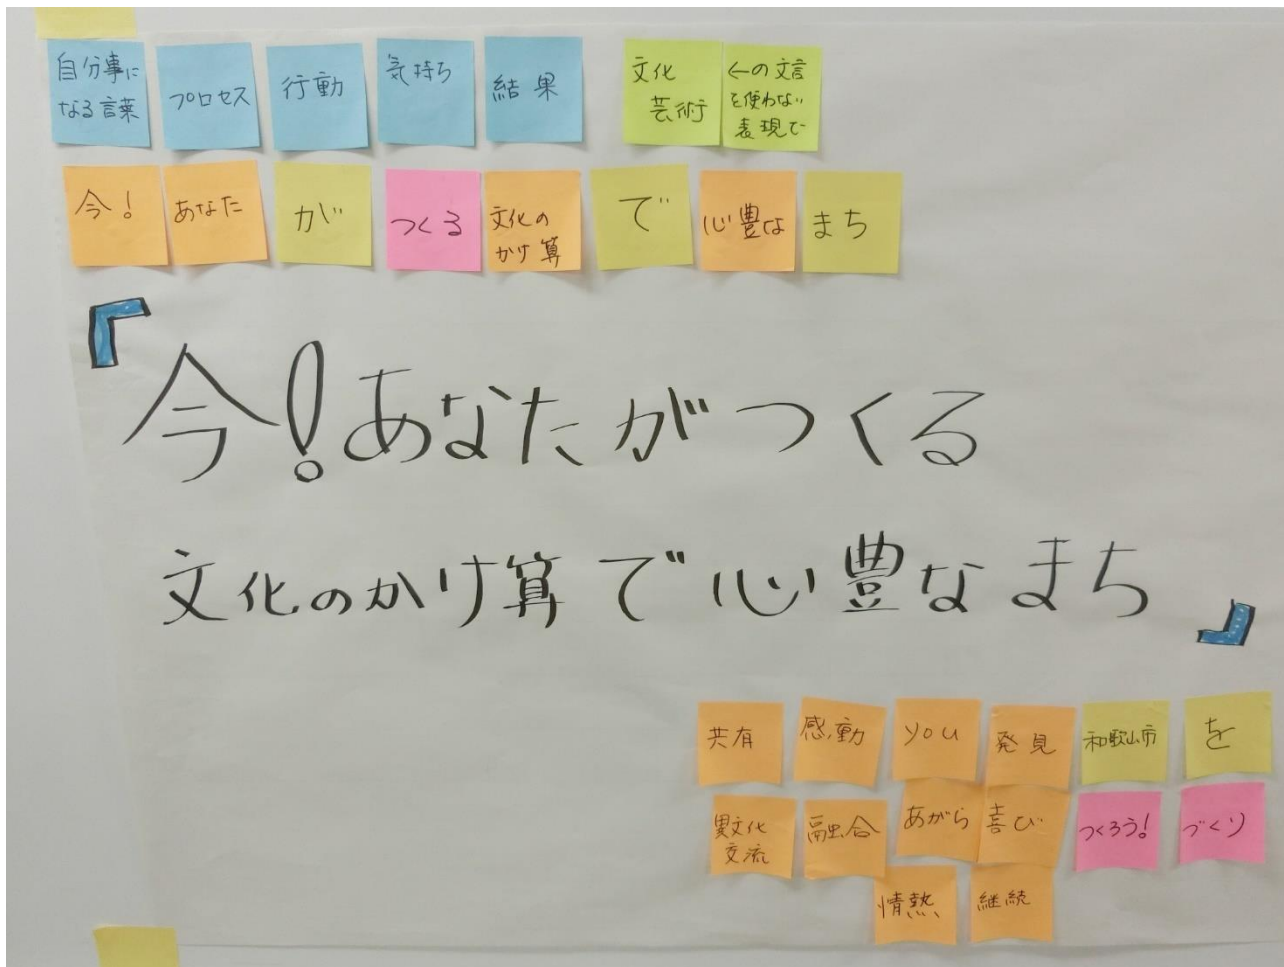 自分事に
なる言葉
プロセス
行動
気持ち
結果
文化
芸術
←の文言
を使わない
表現で
今!
あなた
が
つくる
文化の
かけ算
で
心豊な
まち
『今!あなたがつくる
文化のかけ算で心豊なまち』
共有
感動
you
発見
和歌山市
を
異文化
交流
融合
あがら
喜び
つくろう!
づくり
情熱
継続